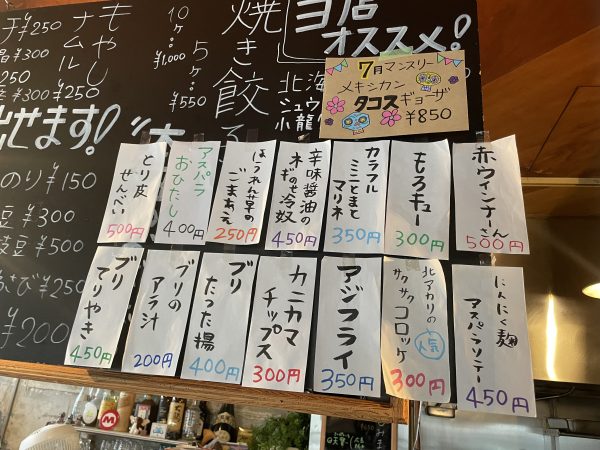 当店
オススメ!
7月マンスリー
メキシカン
タコスギョーザ
¥850
焼き餃子
10ケ…
¥1,000
5ケ…
¥550
もやし
ナムル
¥250
¥250
¥300
¥250
¥300
出せます!
のり ¥150
豆 ¥300
枝豆 ¥500
¥250
¥200
北海
シュウ
小龍
赤ウインナーさん
500円
もろキュー
300円
カラフル
ミニとまと
マリネ
350円
辛味醤油の
ネギのせ冷奴
450円
ほうれん草の
ごまあえ
250円
アスパラ
おひたし
400円
とり皮
せんべい
500円
にんにく麹
アスパラソテー
450円
北アカリの
サクサク
コロッケ
人気
300円
アジフライ
350円
カニカマ
チップス
300円
ブリ
たった揚
400円
ブリの
アラ汁
200円
ブリ
てりやき
450円